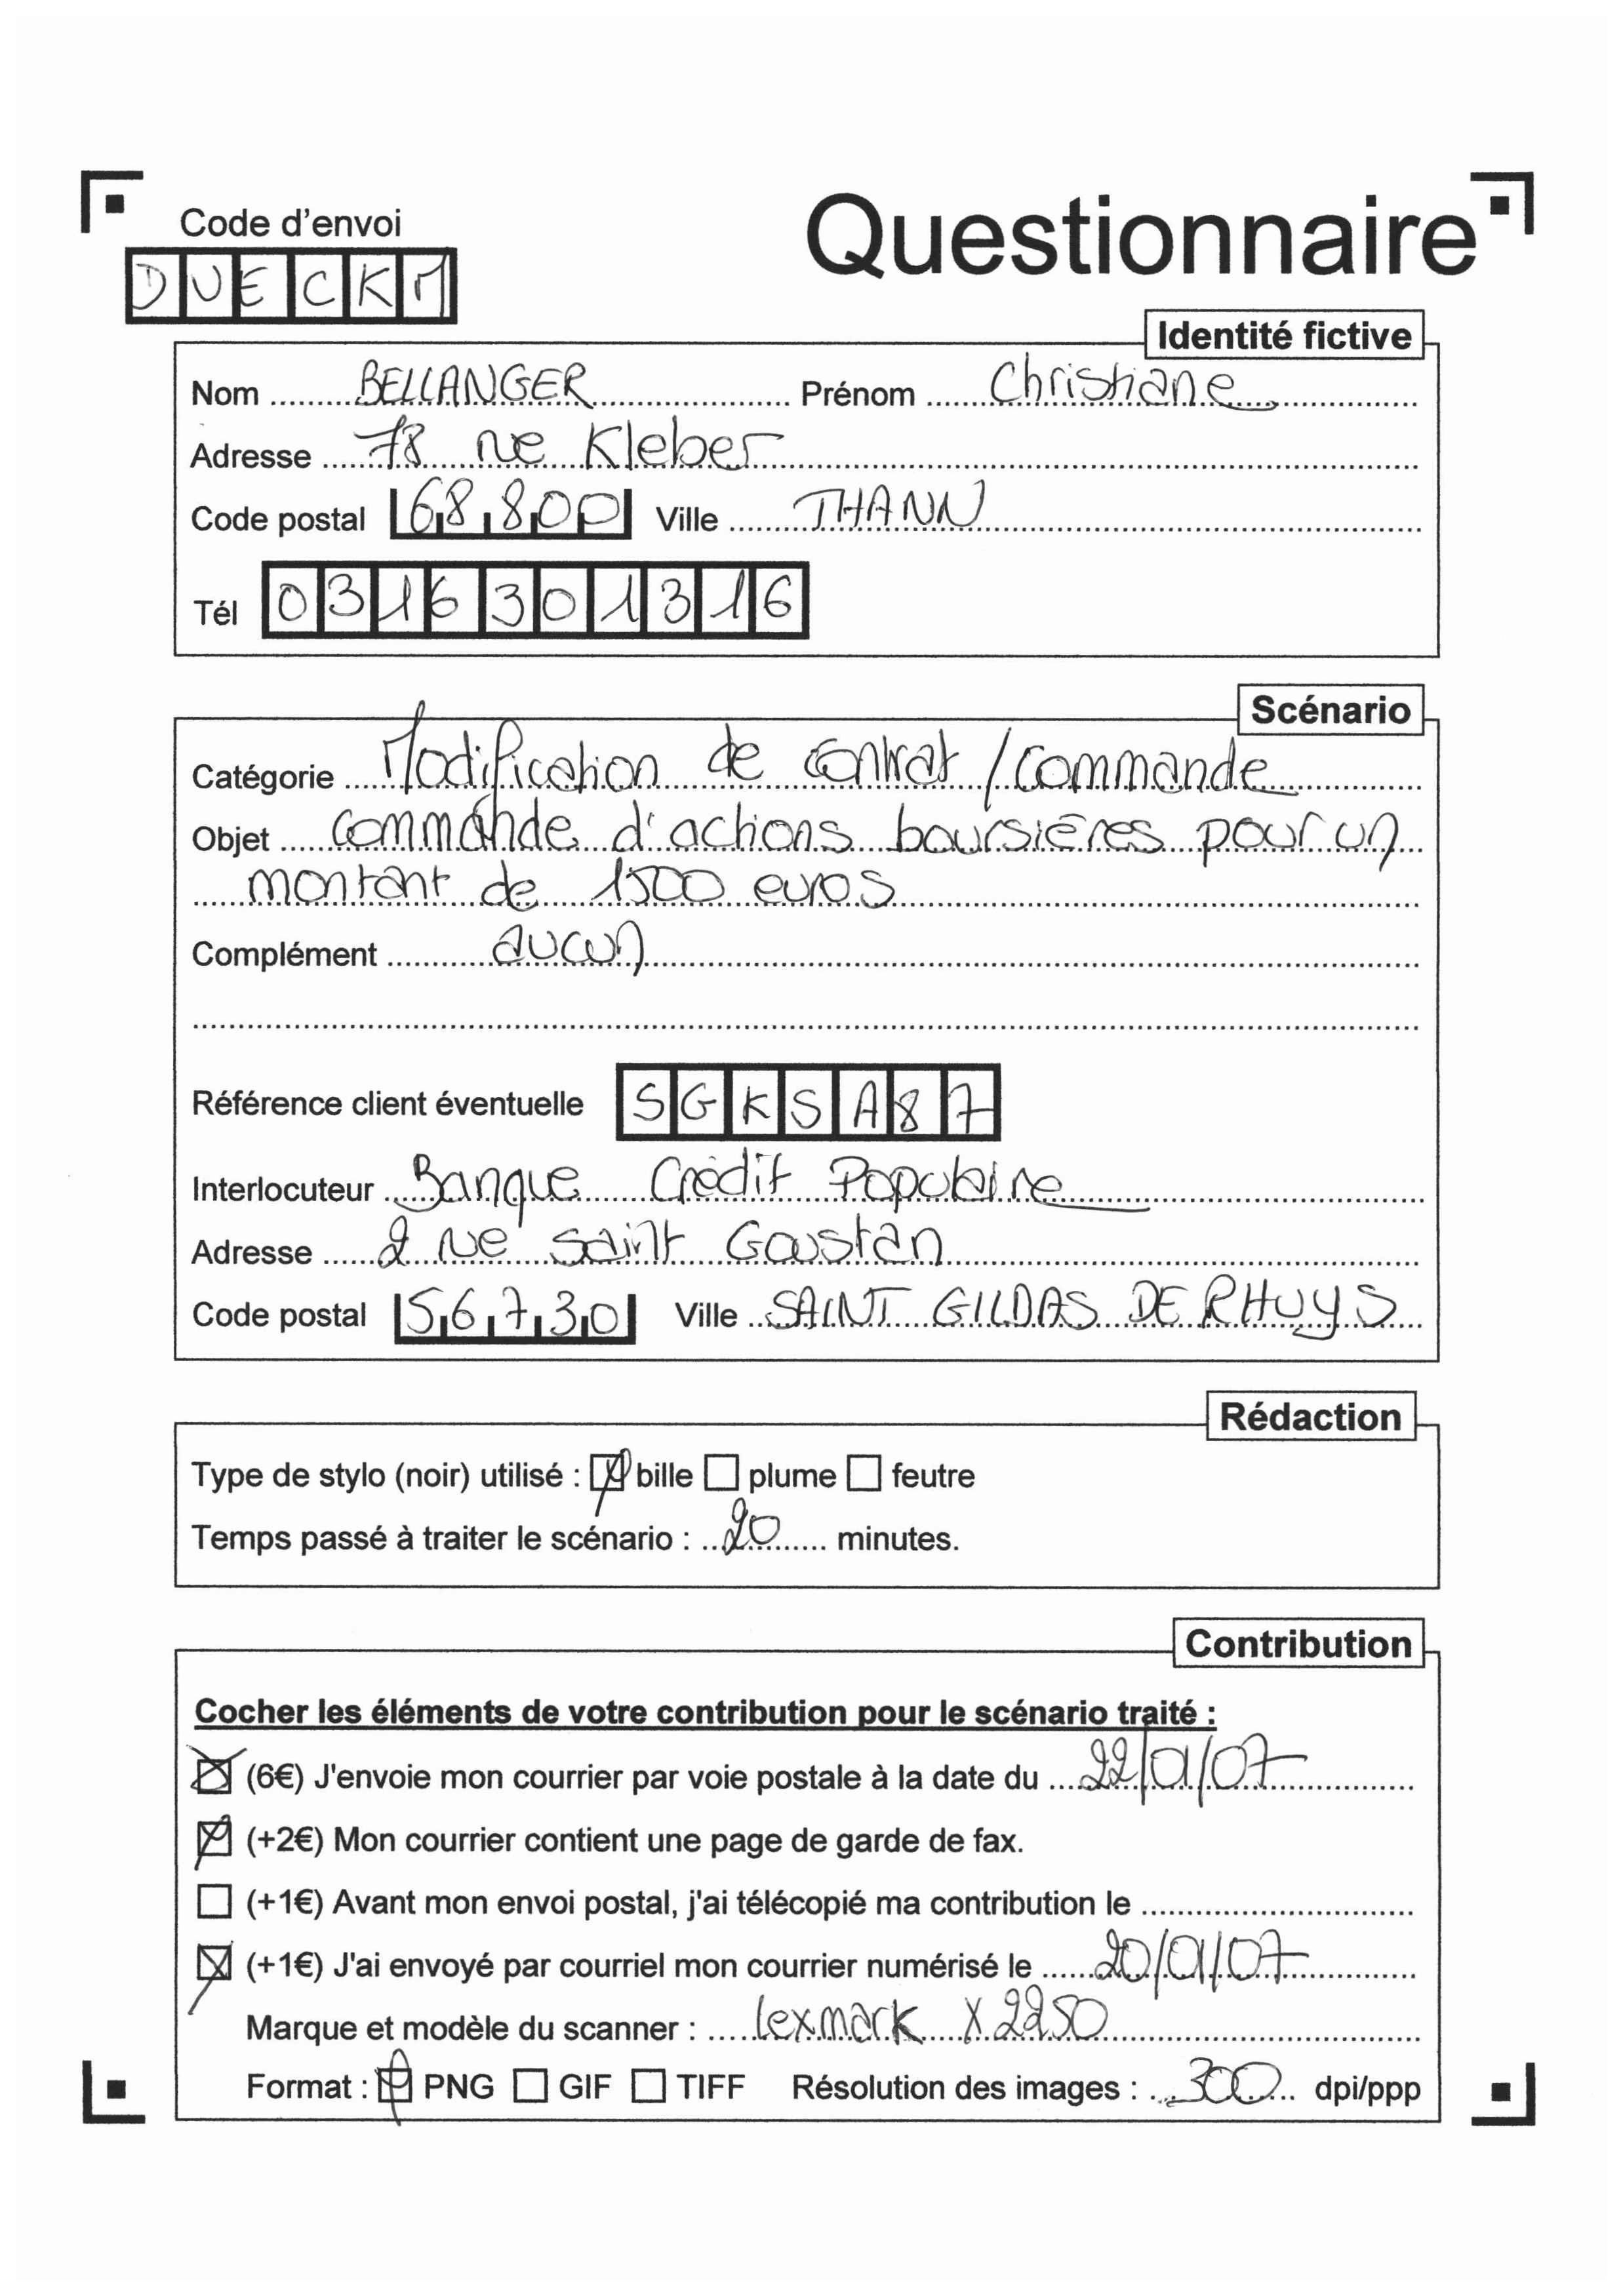 Questionnaire
Code d'envoi
DUECKM
Identité fictive
Nom BELLANGER Prénom Christiane
Adresse 78 rue Kleber
Code postal 68800 Ville THANN
Tél 0316301316
Scénario
Catégorie Modification de contrat / commande
Objet commande d'actions boursières pour un
montant de 1500 euros
Complément aucun
Référence client éventuelle SGKSA87
Interlocuteur Banque Crédit Populaire
Adresse 2 rue Saint Goustan
Code postal 56730 Ville SAINT GILDAS DE RHUYS
Rédaction
Type de stylo (noir) utilisé : bille plume feutre
Temps passé à traiter le scénario : 20 minutes.
Contribution
Cocher les éléments de votre contribution pour le scénario traité :
(6€) J'envoie mon courrier par voie postale à la date du 22/01/07
(+2€) Mon courrier contient une page de garde de fax.
(+1€) Avant mon envoi postal, j'ai télécopié ma contribution le
(+1€) J'ai envoyé par courriel mon courrier numérisé le 20/01/07
Marque et modèle du scanner : lexmark X2250
Format : PNG GIF TIFF Résolution des images : 300 dpi/ppp